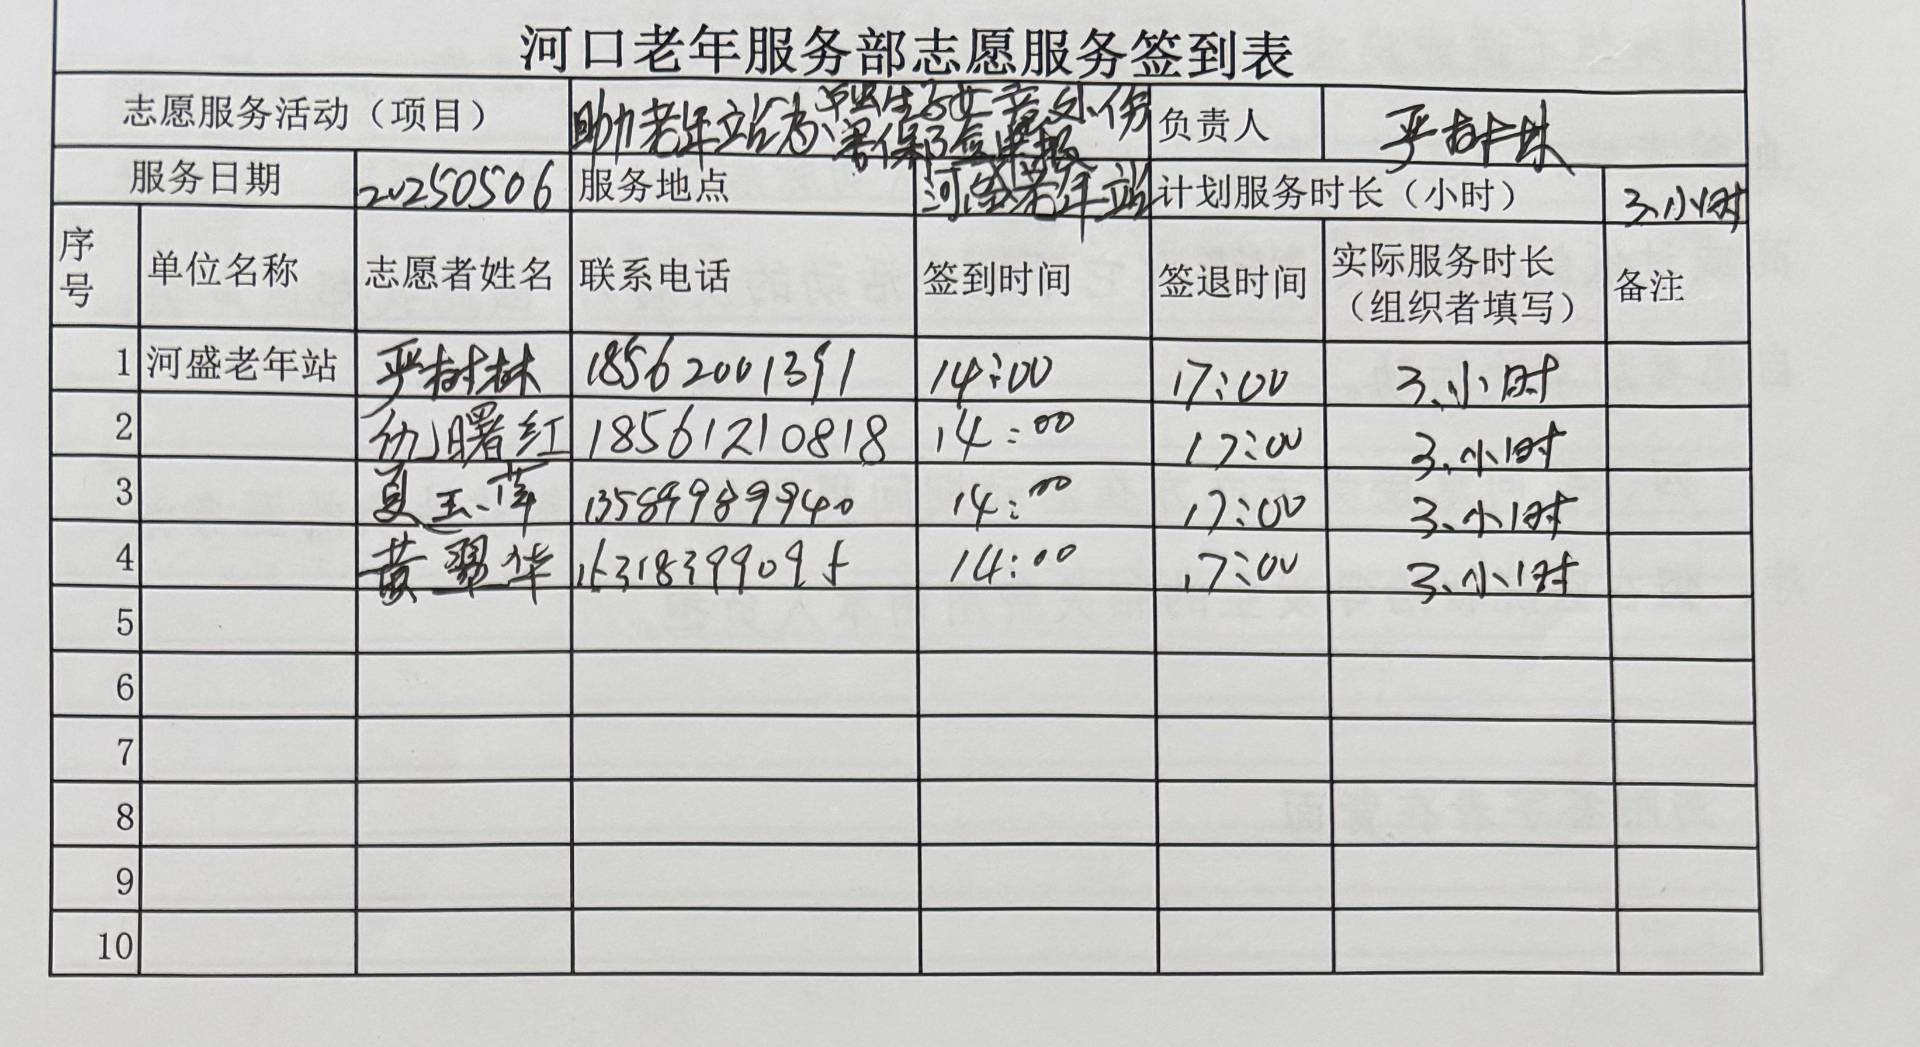 河口老年服务部志愿服务签到表
志愿服务活动（项目） 助力老年站为 负责人 严树林
服务日期 20250506 服务地点 河盛老年站 计划服务时长（小时） 3小时
序号 单位名称 志愿者姓名 联系电话 签到时间 签退时间 实际服务时长（组织者填写） 备注
1 河盛老年站 严树林 18562001391 14:00 17:00 3小时
2 曙红 18561210818 14:00 17:00 3小时
3 夏玉萍 13589989940 14:00 17:00 3小时
4 黄翠华 14:00 17:00 3小时
5
6
7
8
9
10